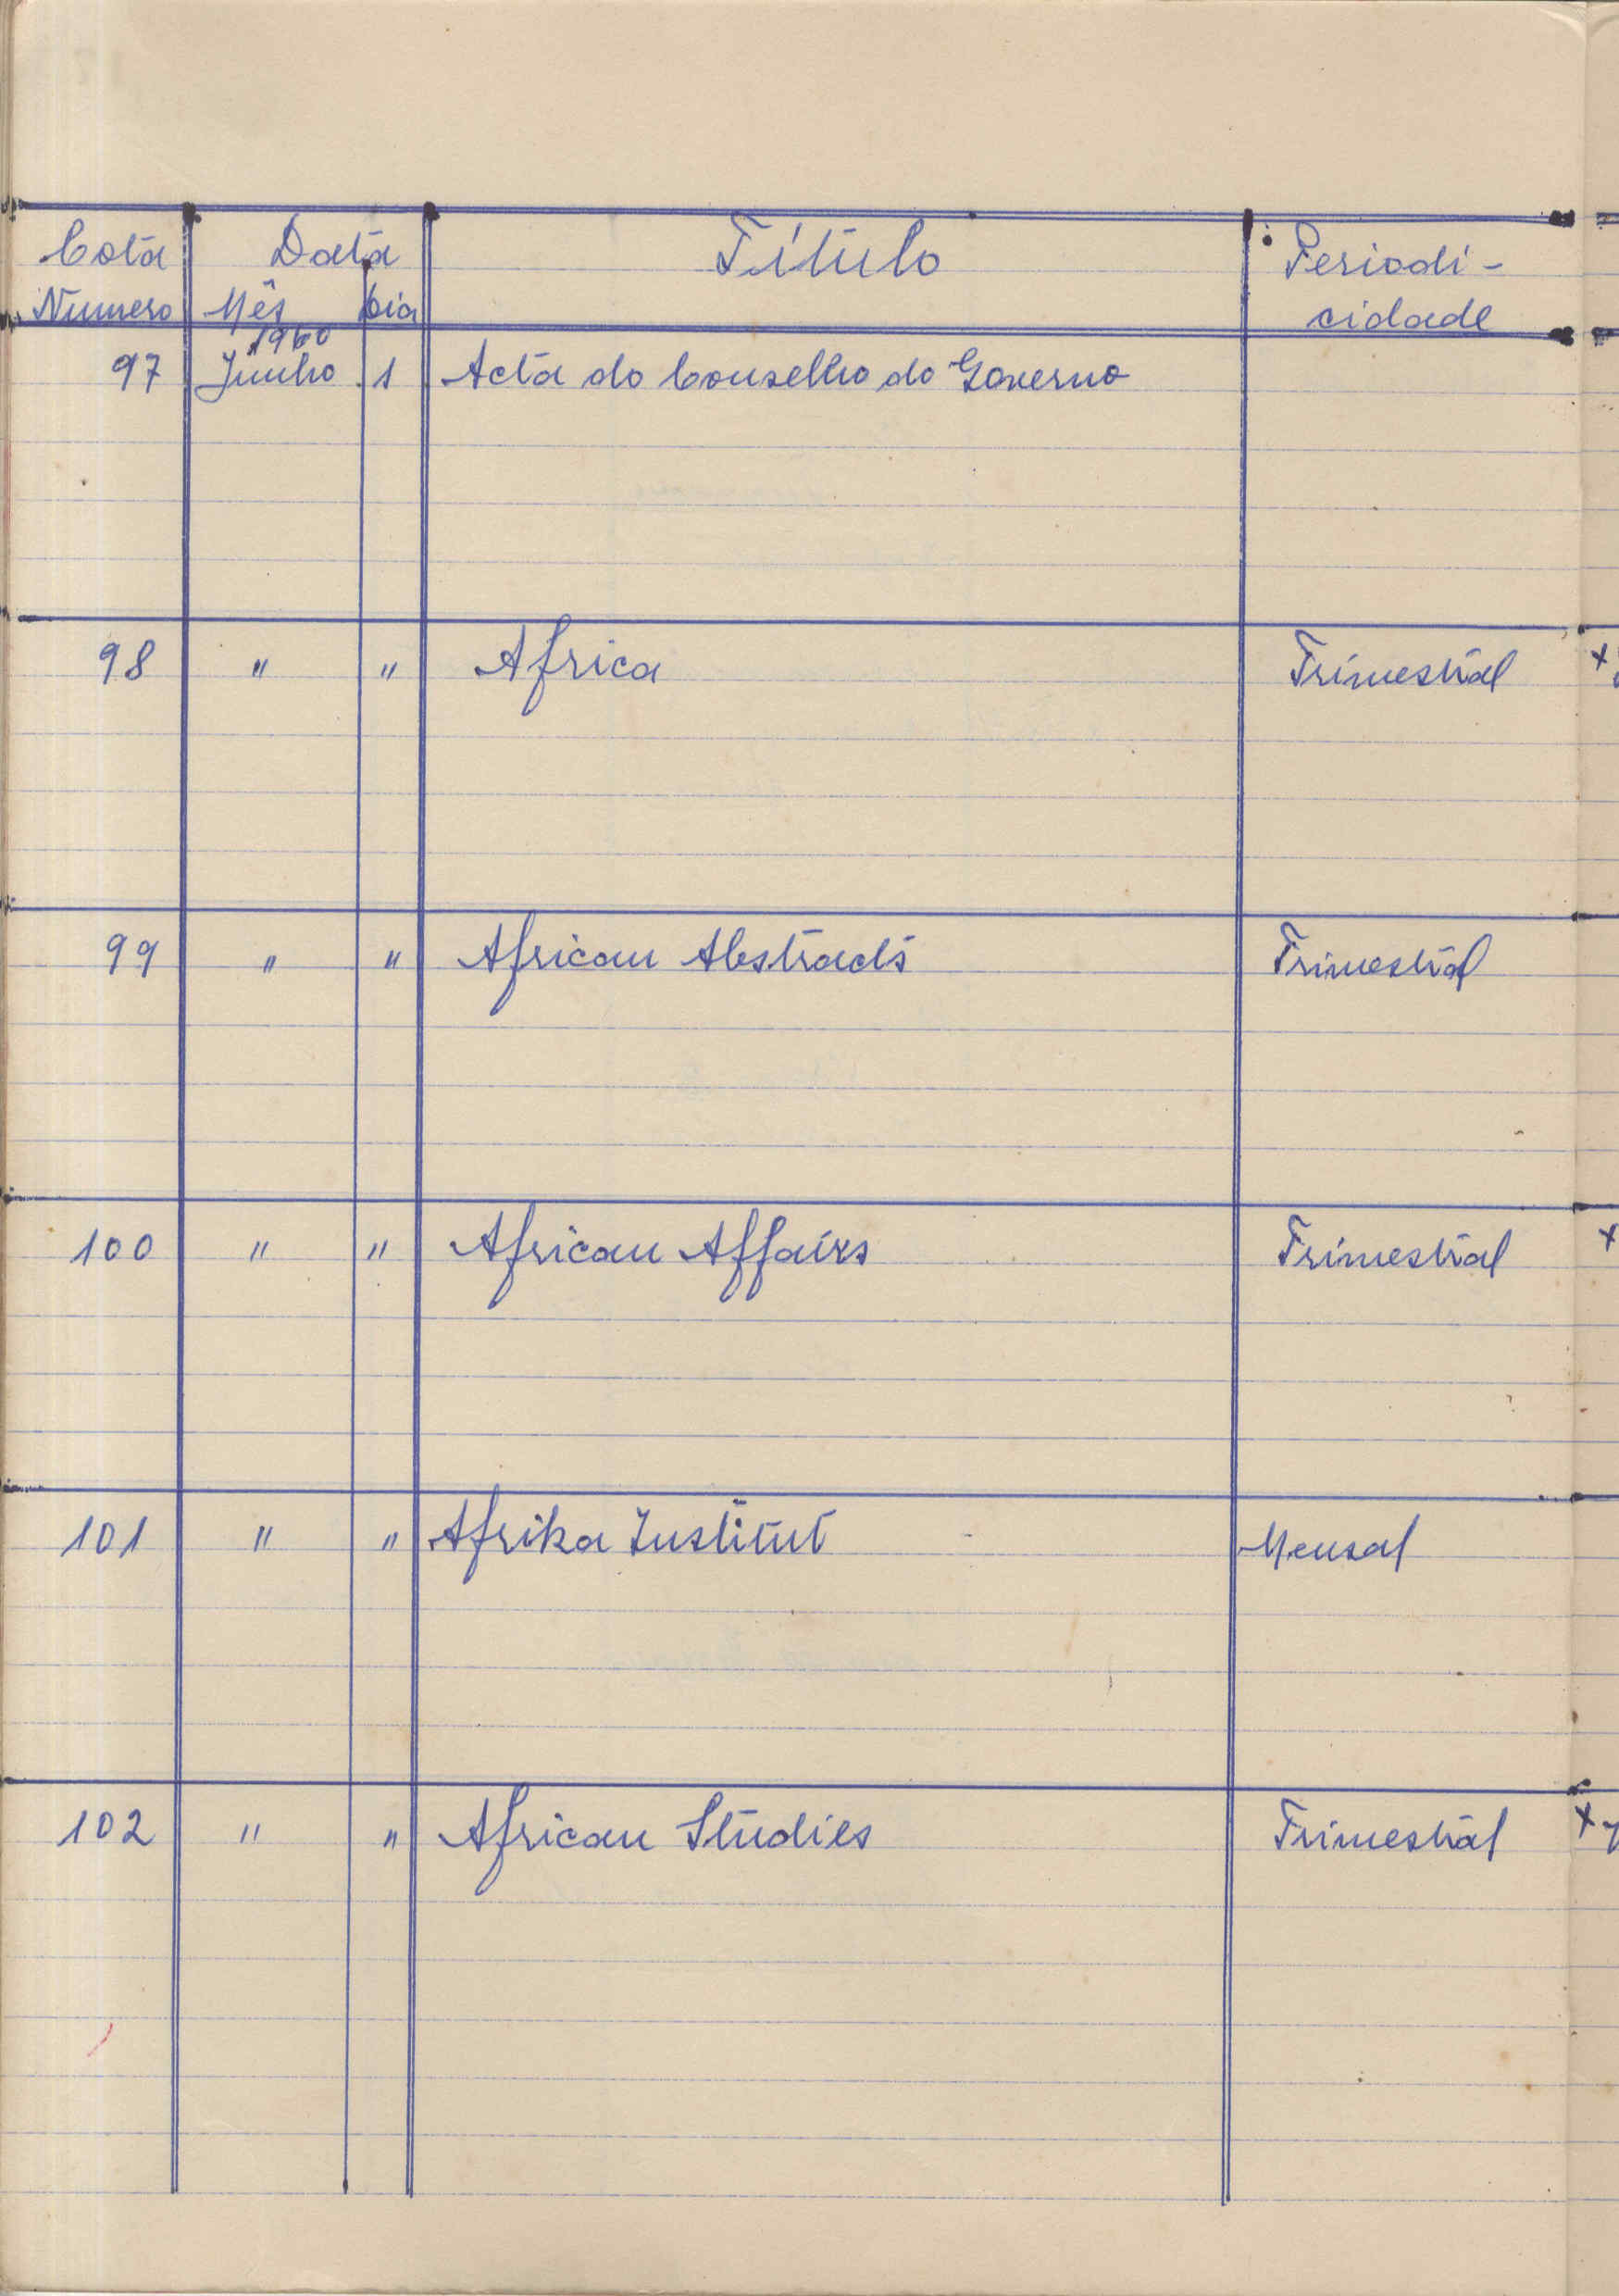 Cota Data Título Periodi-
Numero Mês Dia cidade
1960
97 Junho 1 Acta do Conselho do Governo
98 " " Africa Trimestral
99 " " African Abstracts Trimestral
100 " " African Affairs Trimestral
101 " " Afrika Institut Mensal
102 " " African Studies Trimestral